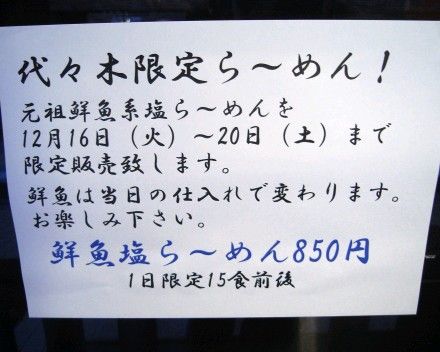 代々木限定ら～めん！
元祖鮮魚系塩ら～めんを
12月16日（火）～20日（土）まで
限定販売致します。
鮮魚は当日の仕入れで変わります。
お楽しみ下さい。
鮮魚塩ら～めん850円
1日限定15食前後